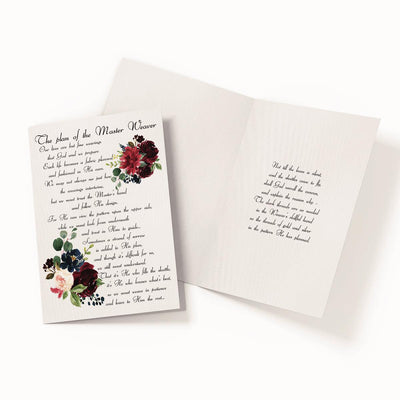 The plan of the Master Weaver
Our lives are but fine weavings
that God and we prepare
Each life becomes a fabric planned
and fashioned in His care
We may not always see just how
the weavings intertwine,
but we must trust the Master's hand
and follow His design,
For He can view the pattern upon the upper side,
while we must look from underneath
and trust in Him to guide...
Sometimes a strand of sorrow
is added to His plan,
and though it's difficult for us,
we still must understand,
That it's He who fills the shuttle,
it's He who knows what's best,
so we must weave in patience
and leave to Him the rest...
Not till the loom is silent
and the shuttles cease to fly
shall God unroll the canvas
and explain the reason why -
The dark threads are as needed
in the Weaver's skillful hand
as the threads of gold and silver
in the pattern He has planned.